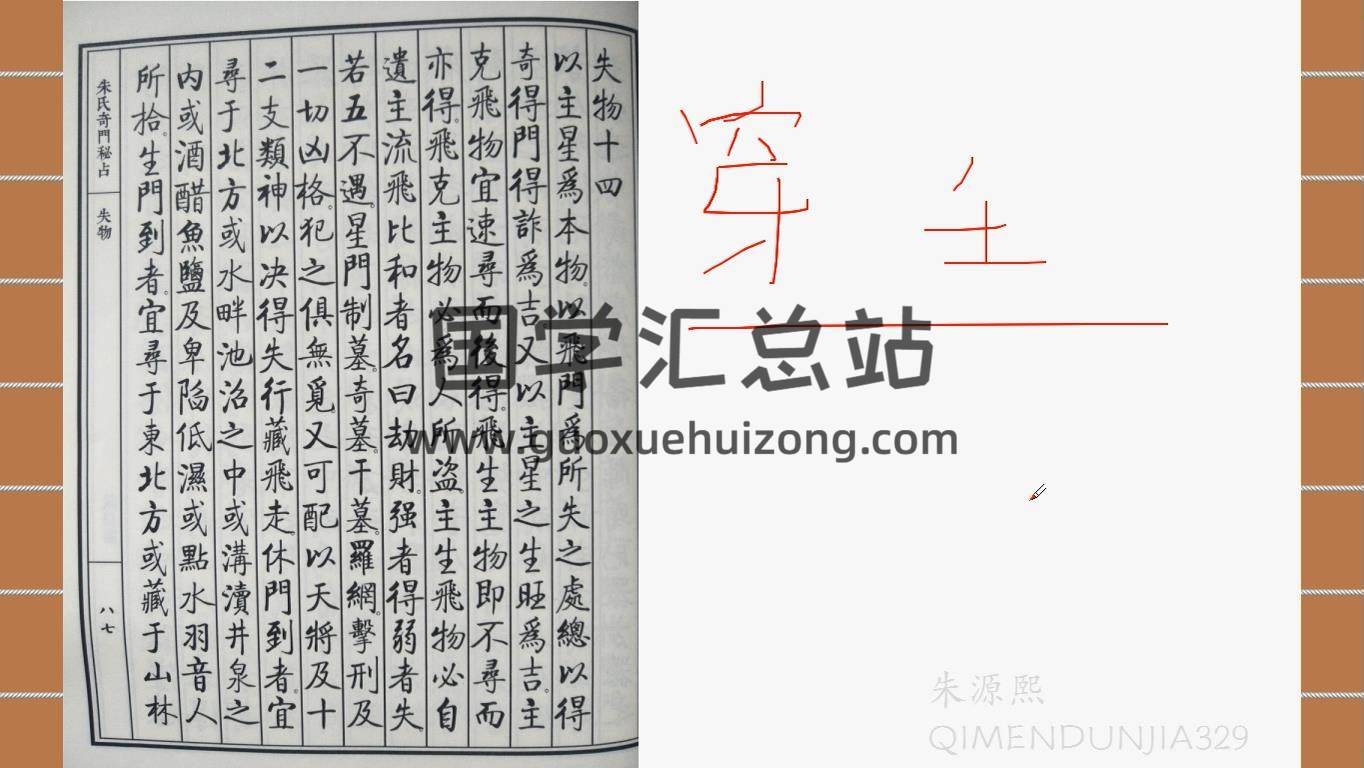 失物十四
以主星爲本物以飛門爲所失之處總以得
奇得門得詐爲吉又以主星之生旺爲吉主
克飛物宜速尋而後得飛生主物即不尋而
亦得飛克主物必爲人所盜主生飛物必自
遺主流飛比和者名曰劫財强者得弱者失
若五不遇星門制墓奇墓干墓羅網擊刑及
一切凶格犯之俱無覓又可配以天將及十
二支類神以决得失行藏飛走休門到者宜
尋于北方或水畔池沼之中或溝瀆井泉之
内或酒醋魚鹽及卑陷低濕或點水羽音人
所拾生門到者宜尋于東北方或藏于山林
朱氏奇門秘占
失物
八七
穿
国学汇总站
www.guoxuehuizong.com
朱源熙
QIMENDUNJIA329